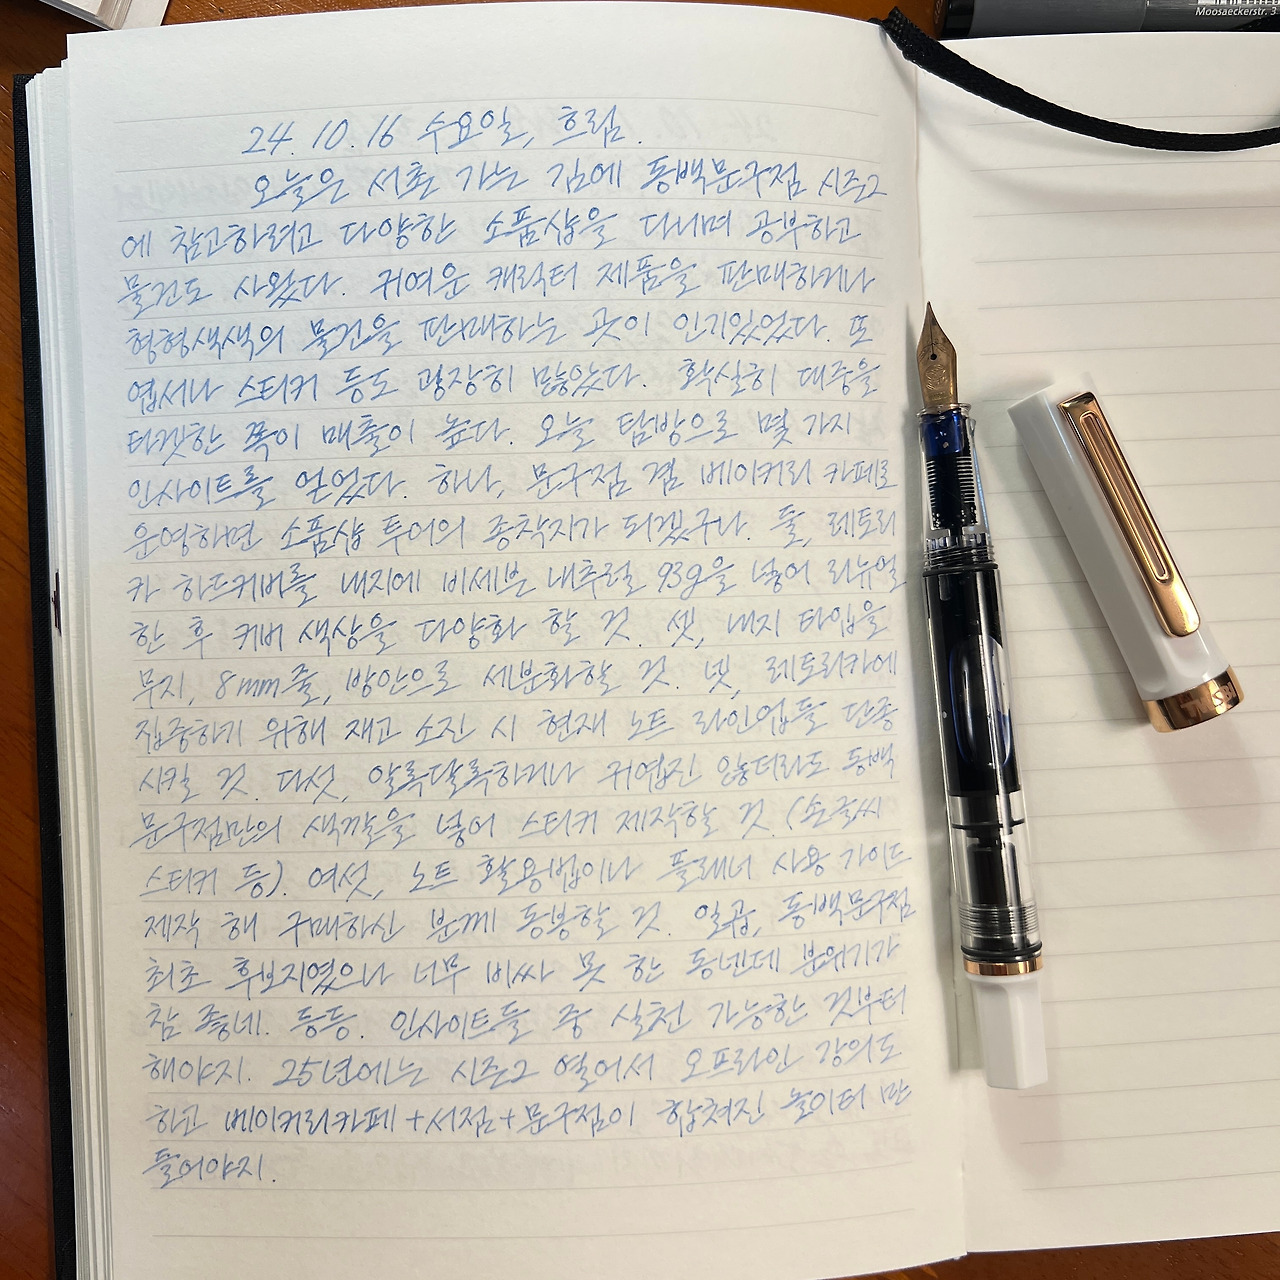 Moosaeckerstr. 3
24. 10. 16 수요일, 흐림.
오늘은 서촌 가는 김에 동백문구점 시즌2
에 참고하려고 다양한 소품샵을 다니며 공부하고
물건도 사왔다. 귀여운 캐릭터 제품을 판매하거나
형형색색의 물건을 판매하는 곳이 인기있었다. 또
엽서나 스티커 등도 굉장히 많았다. 확실히 대중을
타겟한 쪽이 매출이 높다. 오늘 탐방으로 몇 가지
인사이트를 얻었다. 하나, 문구점 겸 베이커리 카페로
운영하면 소품샵 투어의 종착지가 되겠구나. 둘, 레토리
카 하드커버를 내지에 비세븐 내추럴 93g을 넣어 리뉴얼
한 후 커버 색상을 다양화 할 것. 셋, 내지 타입을
무지, 8mm줄, 방안으로 세분화할 것. 넷, 레토리카에
집중하기 위해 재고 소진 시 현재 노트 라인업들 단종
시킬 것. 다섯, 알록달록하거나 귀엽진 않더라도 동백
문구점만의 색깔을 넣어 스티커 제작할 것. (손글씨
스티커 등). 여섯, 노트 활용법이나 플래너 사용 가이드
제작 해 구매하신 분께 동봉할 것. 일곱, 동백문구점
최초 후보지였으나 너무 비싸 못 한 동네인데 분위기가
참 좋네. 등등. 인사이트들 중 실천 가능한 것부터
해야지. 25년에는 시즌2 열어서 오프라인 강의도
하고 베이커리카페+서점+문구점이 합쳐진 놀이터 만
들어야지.
TWSBI